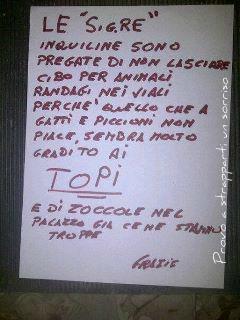 LE "SIG.RE"
INQUILINE SONO
PREGATE DI NON LASCIARE
CIBO PER ANIMALI
RANDAGI NEI VIALI
PERCHÈ QUELLO CHE A
GATTI E PICCIONI NON
PIACE, SEMBRA MOLTO
GRADITO AI
TOPI
E DI ZOCCOLE NEL
PALAZZO GIÀ CE NE STANNO
TROPPE
GRAZIE
Provo a strapparti un sorriso